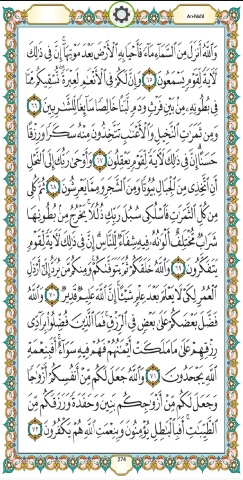 An-Nahl
وَٱللَّهُ أَنزَلَ مِنَ ٱلسَّمَآءِ مَآءً فَأَحْيَا بِهِ ٱلْأَرْضَ بَعْدَ مَوْتِهَآ إِنَّ فِى ذَٰلِكَ
لَـَٔايَةً لِّقَوْمٍ يَسْمَعُونَ ٦٥ وَإِنَّ لَكُمْ فِى ٱلْأَنْعَٰمِ لَعِبْرَةً نُّسْقِيكُم مِّمَّا
فِى بُطُونِهِۦ مِنۢ بَيْنِ فَرْثٍ وَدَمٍ لَّبَنًا خَالِصًا سَآئِغًا لِّلشَّٰرِبِينَ ٦٦
وَمِن ثَمَرَٰتِ ٱلنَّخِيلِ وَٱلْأَعْنَٰبِ تَتَّخِذُونَ مِنْهُ سَكَرًا وَرِزْقًا
حَسَنًا إِنَّ فِى ذَٰلِكَ لَـَٔايَةً لِّقَوْمٍ يَعْقِلُونَ ٦٧ وَأَوْحَىٰ رَبُّكَ إِلَى ٱلنَّحْلِ
أَنِ ٱتَّخِذِى مِنَ ٱلْجِبَالِ بُيُوتًا وَمِنَ ٱلشَّجَرِ وَمِمَّا يَعْرِشُونَ ٦٨ ثُمَّ كُلِى
مِن كُلِّ ٱلثَّمَرَٰتِ فَٱسْلُكِى سُبُلَ رَبِّكِ ذُلُلًا يَخْرُجُ مِنۢ بُطُونِهَا
شَرَابٌ مُّخْتَلِفٌ أَلْوَٰنُهُۥ فِيهِ شِفَآءٌ لِّلنَّاسِ إِنَّ فِى ذَٰلِكَ لَـَٔايَةً لِّقَوْمٍ
يَتَفَكَّرُونَ ٦٩ وَٱللَّهُ خَلَقَكُمْ ثُمَّ يَتَوَفَّىٰكُمْ وَمِنكُم مَّن يُرَدُّ إِلَىٰٓ أَرْذَلِ
ٱلْعُمُرِ لِكَىْ لَا يَعْلَمَ بَعْدَ عِلْمٍ شَيْـًٔا إِنَّ ٱللَّهَ عَلِيمٌ قَدِيرٌ ٧٠ وَٱللَّهُ
فَضَّلَ بَعْضَكُمْ عَلَىٰ بَعْضٍ فِى ٱلرِّزْقِ فَمَا ٱلَّذِينَ فُضِّلُوا۟ بِرَآدِّى
رِزْقِهِمْ عَلَىٰ مَا مَلَكَتْ أَيْمَٰنُهُمْ فَهُمْ فِيهِ سَوَآءٌ أَفَبِنِعْمَةِ
ٱللَّهِ يَجْحَدُونَ ٧١ وَٱللَّهُ جَعَلَ لَكُم مِّنْ أَنفُسِكُمْ أَزْوَٰجًا
وَجَعَلَ لَكُم مِّنْ أَزْوَٰجِكُم بَنِينَ وَحَفَدَةً وَرَزَقَكُم مِّنَ
ٱلطَّيِّبَٰتِ أَفَبِٱلْبَٰطِلِ يُؤْمِنُونَ وَبِنِعْمَتِ ٱللَّهِ هُمْ يَكْفُرُونَ ٧٢
274